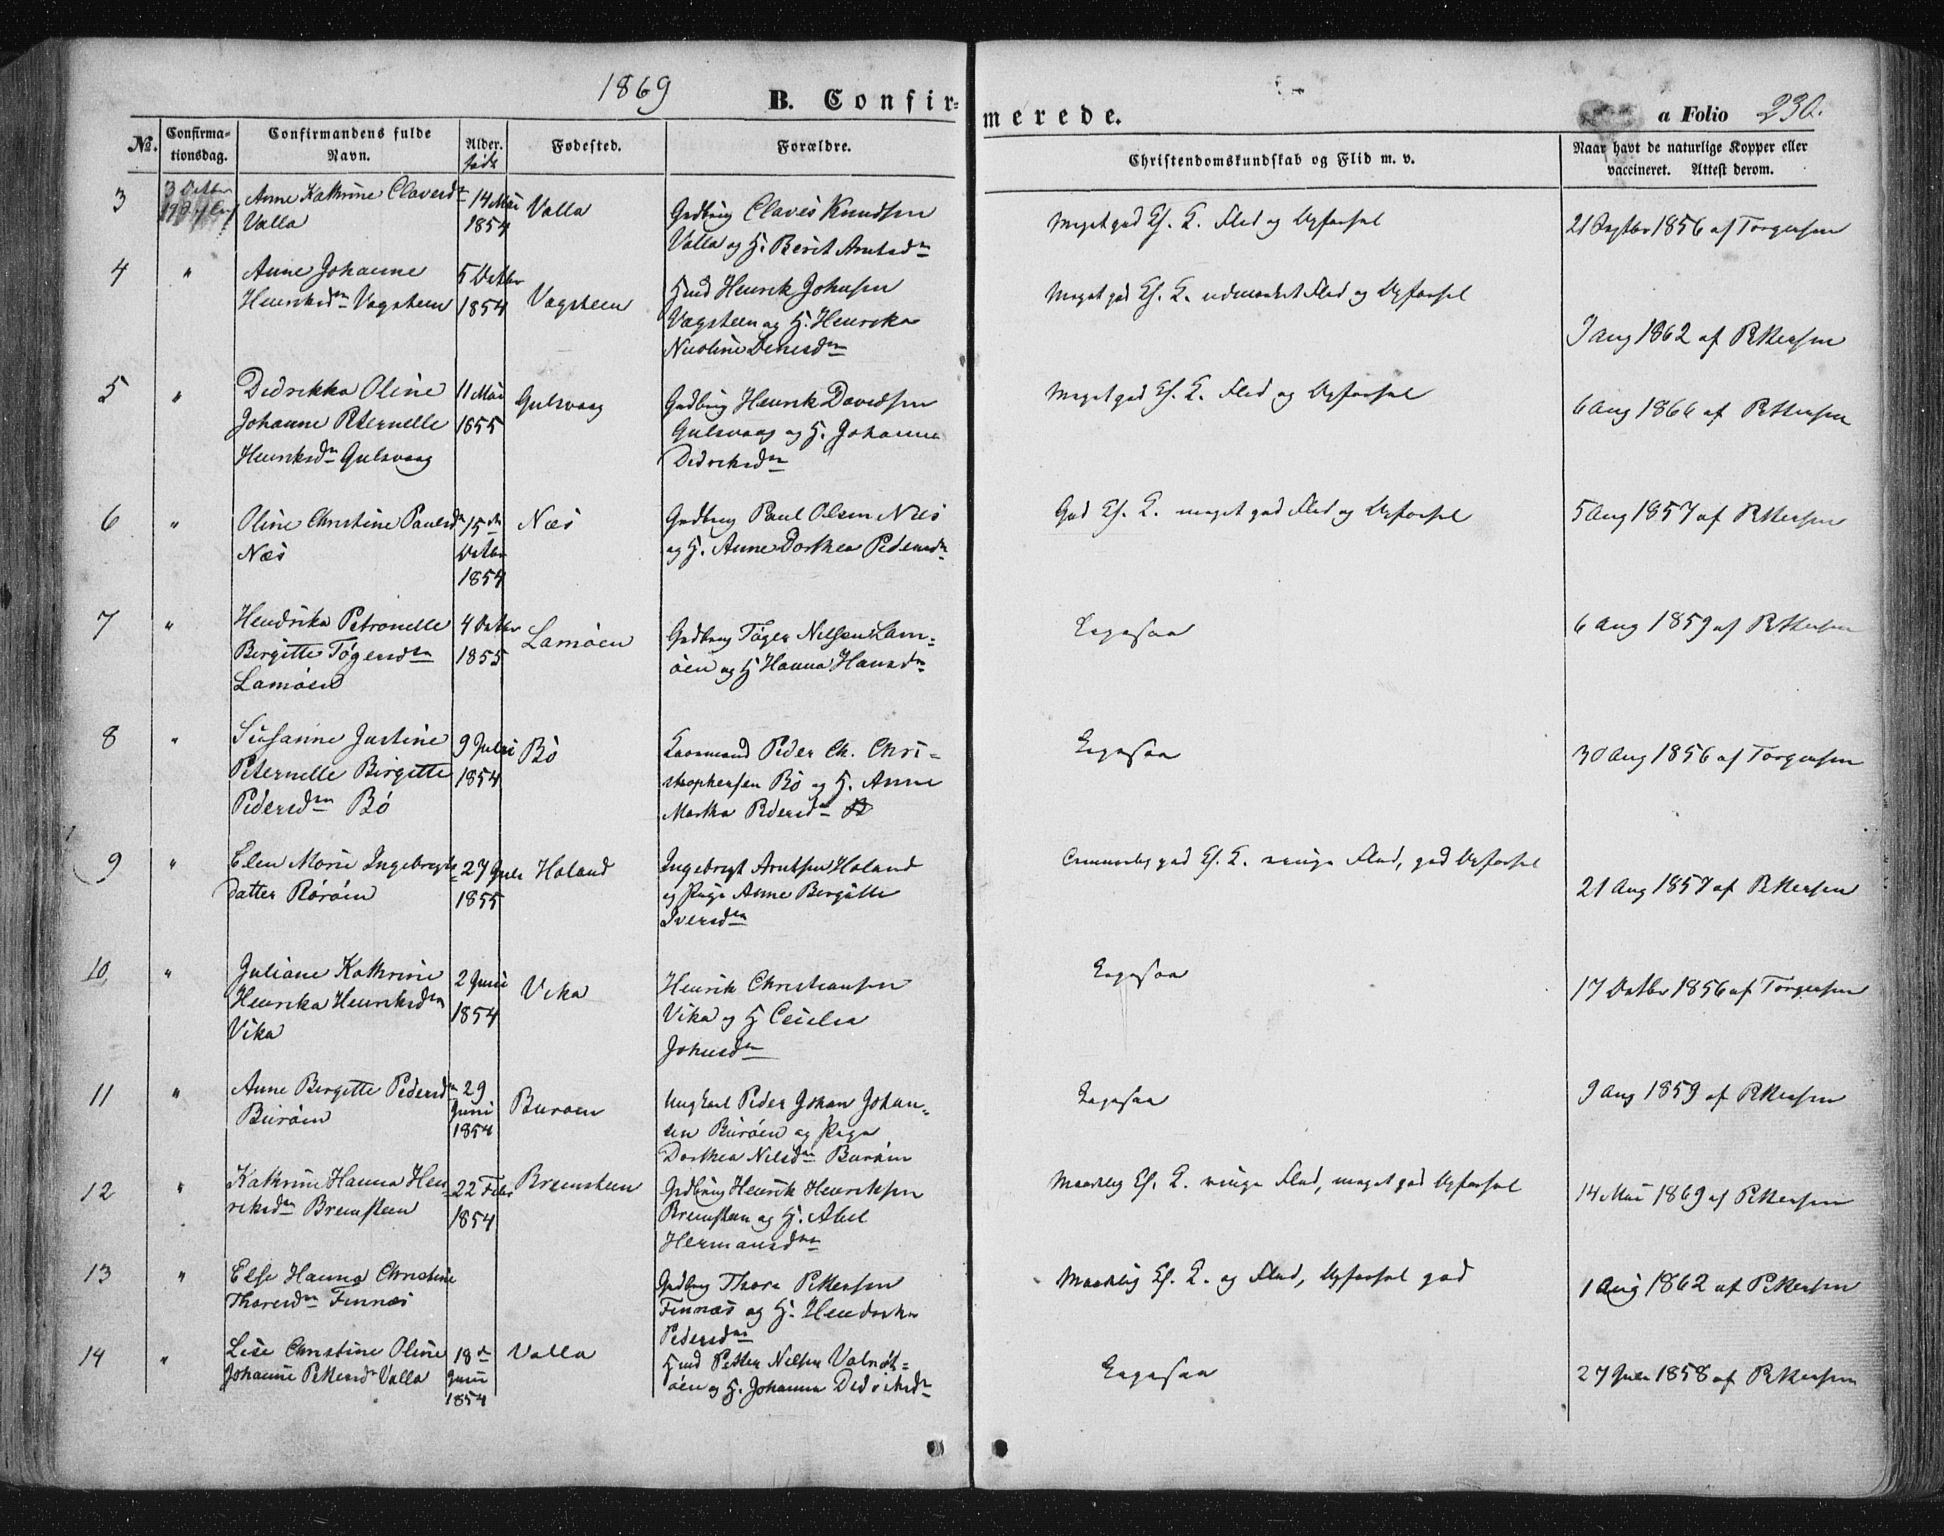 1869
B. Confir-
merede.
a Folio 230.
No.
Confirma-
tionsdag.
Confirmandens fulde
Navn.
Alder.
født
Fødested.
Forældre.
Christendomskundskab og Flid m. v.
Naar havt de naturlige Kopper eller
vaccineret. Attest derom.
3
3 Octbr
Anne Kathrine Clavesdn
Valla
14 Mai
1854
Valla
Gaardbrug Claves Knudsen
Valla og H. Berit Arntsdn
Meget god Cf. K. Flid og Opførsel
21 Septbr 1856 af Torgersen
4
"
Anne Johanne
Henriksdn Vagsteen
5 Octbr
1854
Vagsteen
Hmd Henrik Johnsen
Vagsteen og H. Henrika
Nicoline
Meget god Cf. K. udmærket Flid og Opførsel
3 Aug 1862 af Pettersen
5
"
Dedrikka Oline
Johanne Peternelle
Henriksdn Gulsvaag
11 Mai
1855
Gulsvaag
Gaardbrug Henrik Davidsen
Gulsvaag og H. Johanna
Dedriksdn
Meget god Cf. K. Flid og Opførsel
6 Aug 1866 af Pettersen
6
"
Oline Christine Paulsdn
Næs
15de
Octbr
1854
Næs
Gaardbrug Paul Olsen Næs
og H. Anne Dorthea Pedersdn
God Cf. K. meget god Flid og Opførsel
5 Aug 1857 af Pettersen
7
"
Hendrika Petronelle
Birgitte Tøgersdn
Lamøen
4 Octbr
1855
Lamøen
Gaardbrug Tøger Nilsen Lam-
øen og H Hanna Hansdn
Ligesaa
6 Aug 1859 af Pettersen
8
"
Susanne Justine
Peternelle Birgitte
Pedersdn Bø
9 Juli
1854
Bø
Laarmand Peder Ch. Chri-
stophersen Bø og H. Anne
Martha Pedersdn
Ligesaa
30 Aug 1856 af Torgersen
9
"
Elen Marie Ingebregts-
datter Rørøen
27 Juli
1855
Holand
Ingebregt Arntsen Holand
og Pige Anne Bergitte
Iversdn
god Cf. K. ringe Flid, god Opførsel
21 Aug 1857 af Pettersen
10
"
Juliane Kathrine
Henrika Henriksdn
Vika
2 Juni
1854
Vika
Henrik Christiansen
Vika og H Cecilia
Johnsdn
Ligesaa
17 Octbr 1856 af Torgersen
11
"
Anne Bergitte Pedersdn
Burøen
29
Juni
1854
Burøen
Ungkarl Peder Johan Johan-
sen Burøen og Pige
Dorthea Nilsdn Burøen
Ligesaa
9 Aug 1859 af Pettersen
12
"
Kathrine Hanna Hen-
riksdn Bremsteen
22 Febr
1854
Bremsteen
Gaardbrug Henrik Henriksen
Bremsteen og H. Abel
Hermansdn
Maadelig Cf. K. ringe Flid, meget god Opførsel
14 Mai 1869 af Pettersen
13
"
Else Hanna Christine
Thoresdn Finnæs
Gaardbrug Thore Pettersen
Finnæs og H. Hendrika
Pedersdn
Maadelig Cf. K. og Flid, Opførsel god
1 Aug 1862 af Pettersen
14
"
Lise Christine Oline
Johanne Pettersdn Valla
18de
Juni
1854
Valla
Hmd Petter Nilsen
øen og H. Johanna Dedriksdn
Ligesaa
27 Juli 1858 af Pettersen